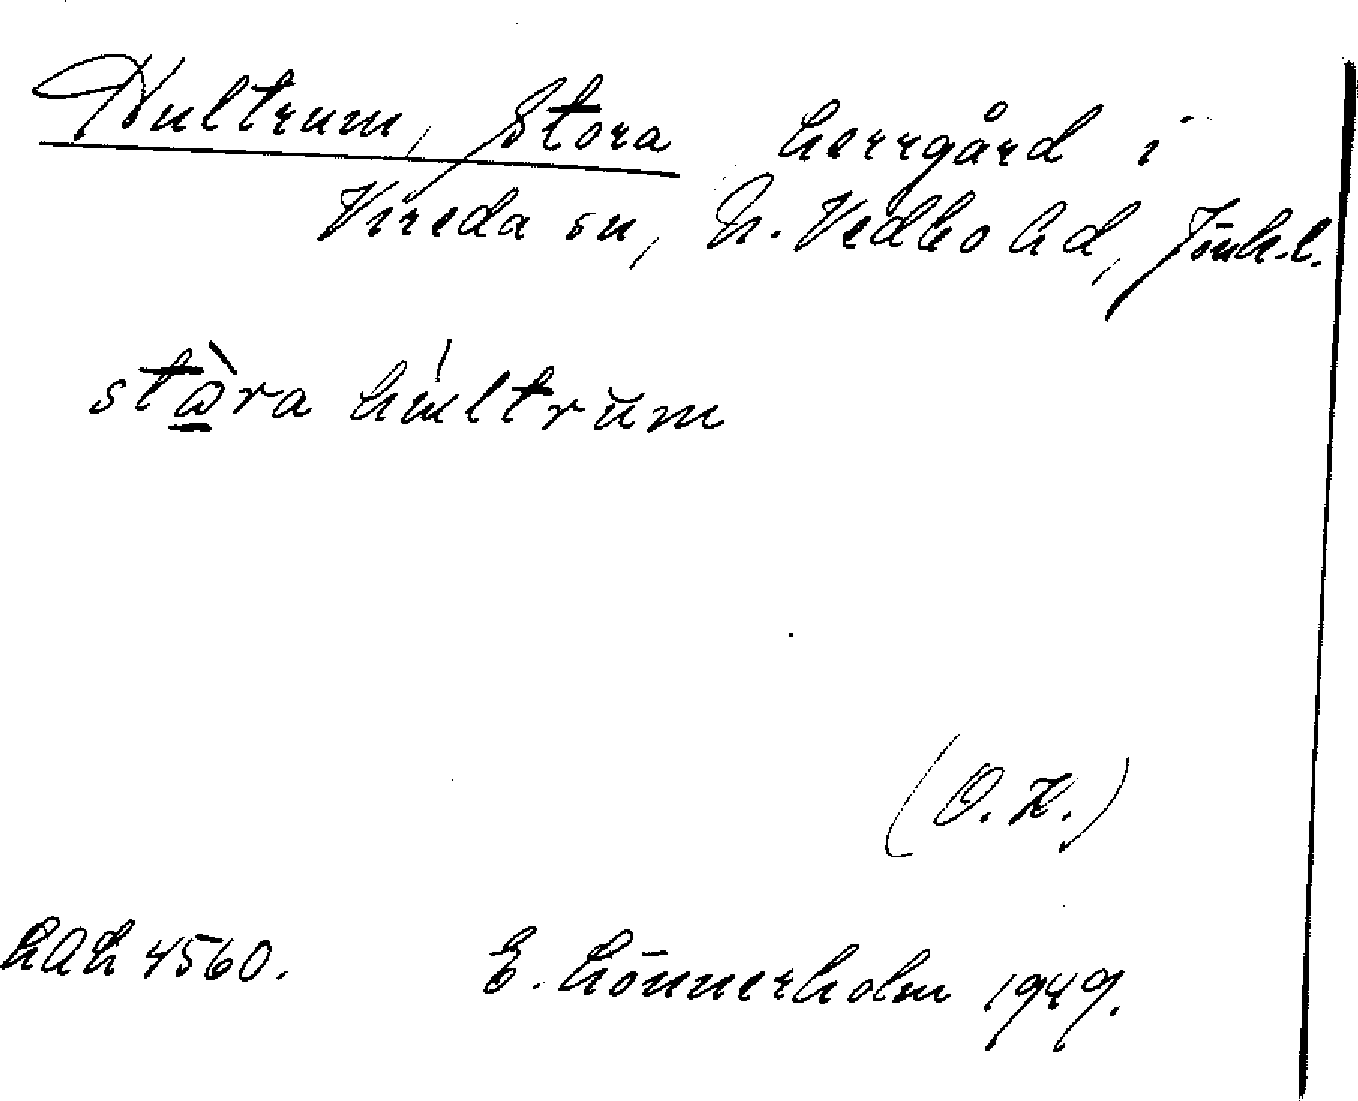 Hultrum, Stora herrgård i
Vireda sn, N. Vedbo hd, Jönk.l.
stɷ̀ra húltrum
(O.K.)
LAL 4560. E. Lönnerholm 1949.